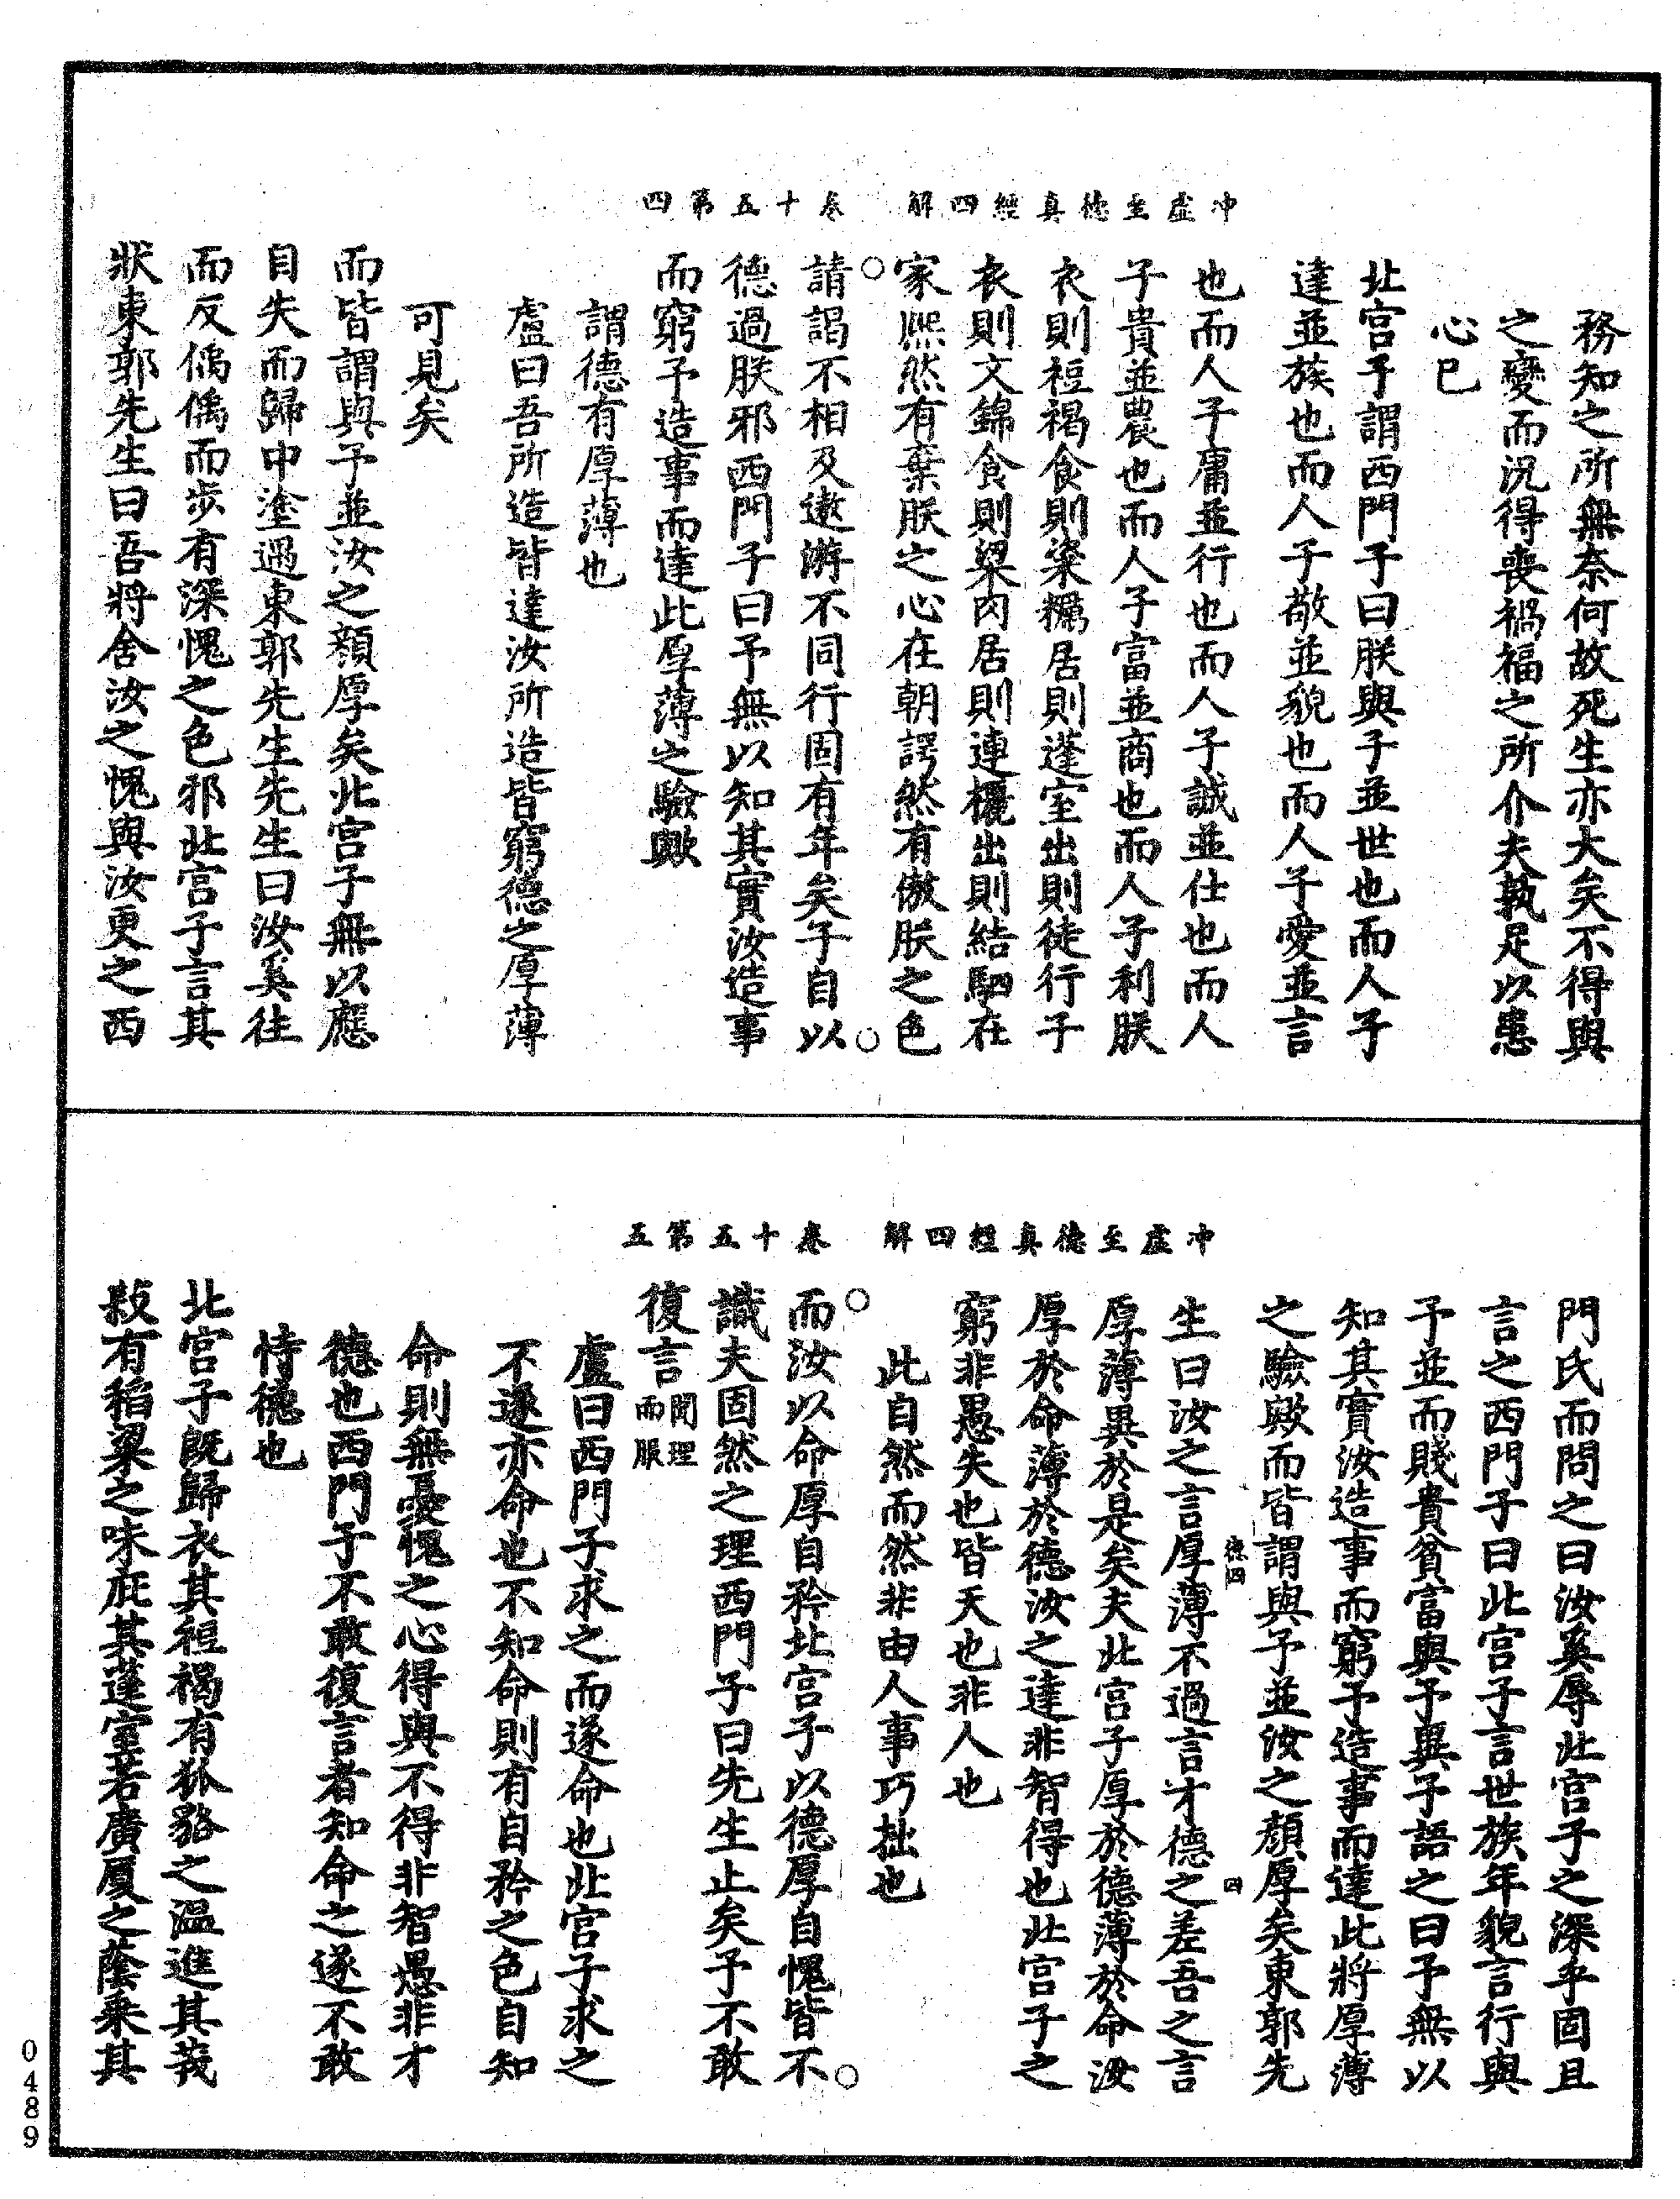 冲虛至德真經四解　卷十五第四
務知之所無奈何故死生亦大矣不得與
之變而況得喪禍福之所介夫孰足以患
心已
北宮子謂西門子曰朕與子並世也而人子
達並族也而人子敬並貌也而人子愛並言
也而人子庸並行也而人子誠並仕也而人
子貴並農也而人子富並商也而人子利朕
衣則裋褐食則粢糲居則蓬室出則徒行子
衣則文錦食則粱肉居則連欐出則結駟在
家熈然有棄朕之心在朝諤然有傲朕之色
請謁不相及遨游不同行固有年矣子自以
德過朕邪西門子曰予無以知其實汝造事
而窮予造事而達此厚薄之驗歟
謂德有厚薄也
盧曰吾所造皆達汝所造皆窮德之厚薄
可見矣
而皆謂與予並汝之顏厚矣北宮子無以應
自失而歸中塗遇東郭先生先生曰汝奚往
而反偊偊而步有深愧之色邪北宮子言其
狀東郭先生曰吾將舍汝之愧與汝更之西
冲虛至德真經四解　卷十五第五
門氏而問之曰汝奚辱北宮子之深乎固且
言之西門子曰北宮子言世族年貌言行與
予並而賤貴貧富與予異予語之曰予無以
知其實汝造事而窮予造事而達此將厚薄
之驗歟而皆謂與予並汝之顏厚矣東郭先
生曰汝之言厚薄不過言才德之差吾之言
厚薄異於是矣夫北宮子厚於德薄於命汝
厚於命薄於德汝之達非智得也北宮子之
窮非愚失也皆天也非人也
此自然而然非由人事巧拙也
而汝以命厚自矜北宮子以德厚自愧皆不
識夫固然之理西門子曰先生止矣予不敢
復言聞理而服
盧曰西門子求之而遂命也北宮子求之
不遂亦命也不知命則有自矜之色自知
命則無憂愧之心得與不得非智愚非才
德也西門子不敢復言者知命之遂不敢
恃德也
北宮子既歸衣其裋褐有狐貉之溫進其茙
菽有稻粱之味庇其蓬室若廣厦之蔭乘其
0489